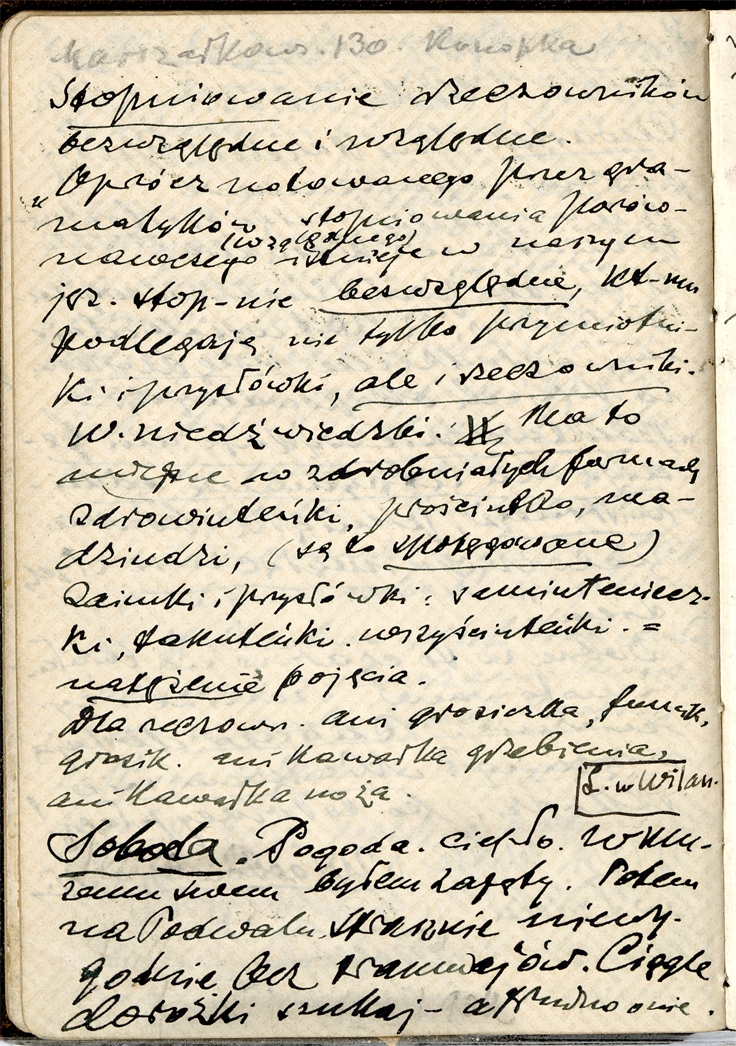 Marszałkows. 130. Konopka
Stopniowanie rzeczowników
bezwzględne i względne.
„Oprócz notowanego przez gra-
matyków stopniowania porów-
nawczego (względnego) istnieje w naszym
jęz. stop-nie bezwzględne, kt-mu
podlegają nie tylko przymiotni-
ki i przysłówki, ale i rzeczowniki.
W. Niedźwiedzki. Ma to
miejsce w zdrobniałych formach
zdrowiuteńki, prościutko, ma-
dziudzi, (są to spotęgowane)
zaimki i przysłówki: samiuteniecz-
ki, takuteńki. wszyściuteńki. =
natężenie pojęcia.
Dla rzeczown. ani grosiczka, funcik,
grosik. ani kawałka grzebienia,
ani kawałka noża.
Ł. w Wilan.
Sobota. Pogoda. ciepło. W Mu-
zeum swem byłem zajęty. Potem
na Podwalu. Strasznie niewy-
godnie bez tramwajów. Ciągle
dorożki szukaj – a trudno o nie.